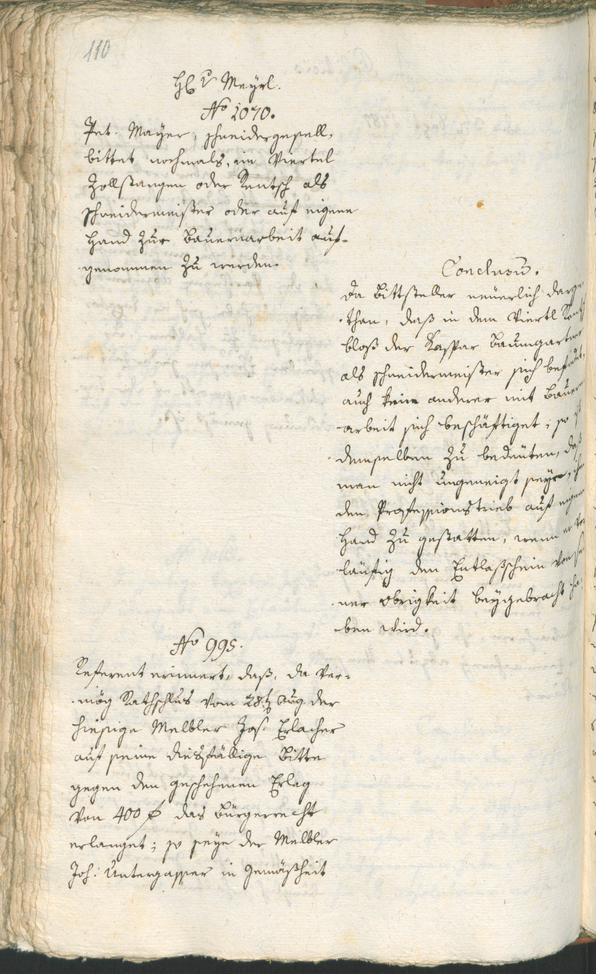 110
H: v Mayrl.
No 1070.
Pet. Mayer, schneidergesell,
bittet nochmals, im Viertel
Zollstangen oder Rentsch als
schneidermeister oder auf eigene
Hand zur Bauernarbeit auf-
genommen zu werden.
Conclusum.
Da Bittsteller neuerlich darge
than, daß in dem Viertl Rentsch
bloß der Kaspar Baumgartner
als schneidermeister sich befindet,
auch keine anderer mit Bauern
arbeit sich beschäftiget; so ist
demselben zu bedeuten, daß
man nicht ungeneigt seye, ihm
den Professionstrieb auf eigene
Hand zu gestatten, wenn er vor
läufig den Entlaßschein von sei
ner obrigkeit beygebracht ha
ben wird.
No 995.
Referent erinnert, daß, da ver-
mög Rathschluß vom 28t Aug. der
hiesige Melbler Jos: Erlacher
auf seine diesfällige Bitte
gegen den geschehenen Erlag
von 400 f das Bürgerrecht
erlanget; so seye der Melbler
Joh: Untergasser in Gemäßheit